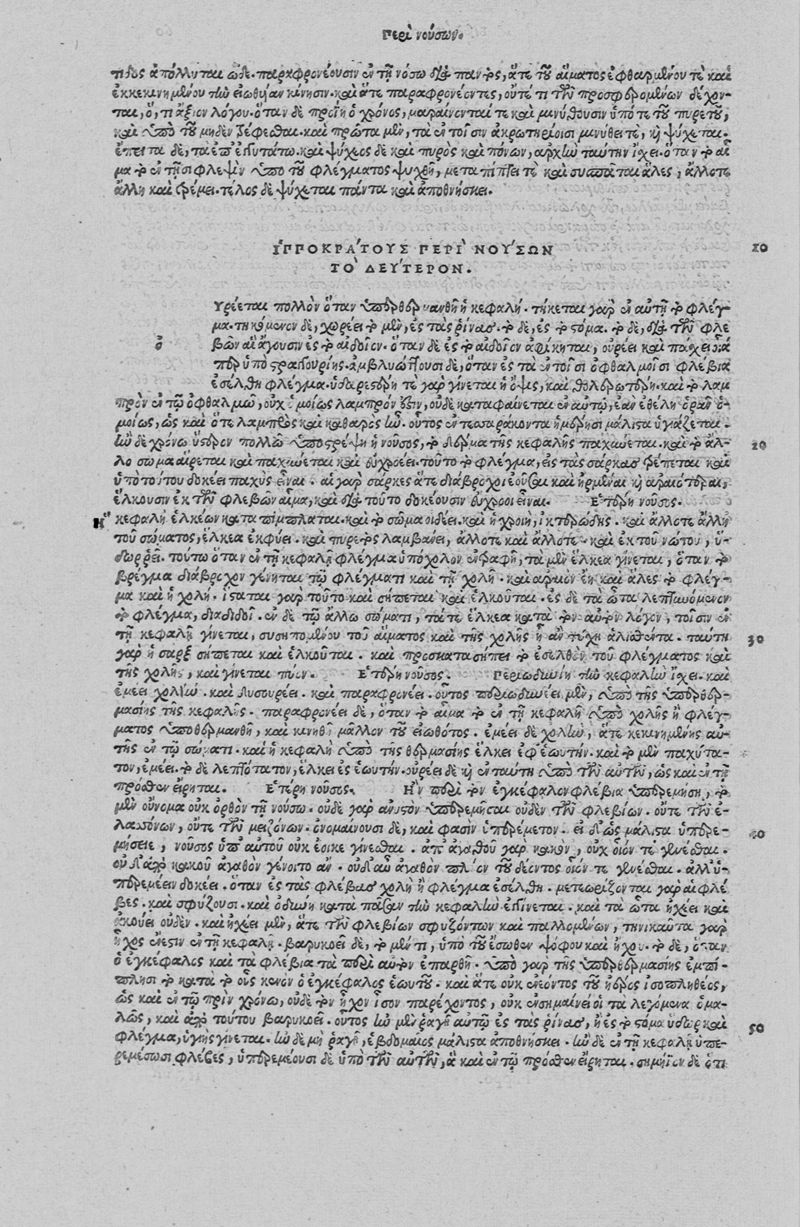 Περὶ νούσων.
τινος ἀπόλλυται ὧδε. παραφρονέουσιν ἐν τῇ νόσῳ διὰ παντὸς, ἅτε τοῦ αἵματος ἐφθαρμένου τὲ καὶ
ἐκκεκινημένου τὴν εἰωθυῖαν κίνησιν. καὶ ἅτε παραφρονέοντες, οὔτέ τι τῶν προσφερομένων δέχον-
ται, ὅ, τι ἄξιον λόγου. ὅταν δὲ προΐῃ ὁ χρόνος, μαραίνονταί τε καὶ μινύθουσιν ὑπό τε τοῦ πυρετοῦ,
καὶ ὑπὸ τοῦ μηδὲν τρέφεσθαι. καὶ πρῶτα μὲν, τὰ ἐν τοῖσιν ἀκρωτηρίοισι μινύθει τε, καὶ ψύχεται.
ἔπειτα δὲ, τὰ ἐπ' ἐγγυτάτω. καὶ ψύχεος δὲ καὶ πυρὸς καὶ πόνων, ἀρχὴν ταύτην ἴχει. ὅταν τὸ αἷ
μα τὸ ἐν τῇσι φλεψὶν ὑπὸ τοῦ φλέγματος ψυχθῇ, μεταπίπτει τὲ καὶ συσπᾶται ἁλὲς, ἄλλοτε
ἄλλῃ καὶ τρέμει. τέλος δὲ ψύχεται πάντα καὶ ἀποθνήσκει.
ἹΠΠΟΚΡΑΤΟΥΣ ΠΕΡΙ ΝΟΥΣΩΝ 10
ΤΟ ΔΕΥΤΕΡΟΝ.
Υρέεται πολλὸν ὅταν ὑπερθερμανθῇ ἡ κεφαλή. τήκεται γὰρ ἐν αὐτῇ τὸ φλέγ-
μα. τηκόμενον δὲ, χωρέει τὸ μὲν, ἐς τὰς ῥίνας. τὸ δὲ, ἐς τὸ στόμα. τὸ δὲ, διὰ τῶν φλε
ο βῶν αἳ ἄγουσιν ἐς τὸ αἰδοῖον. ὅταν δὲ ἐς τὸ αἰδοῖον ἀφίκηται, οὐρέει καὶ πάσχει οἷά
περ ὑπὸ στραγγουρίης. ἀμβλυώττουσι δὲ, ὅταν ἐς τὰ ἐν τοῖσι ὀφθαλμοῖσι φλέβια
ἐσέλθῃ φλέγμα. ὑδαρεστέρη τὲ γὰρ γίνεται ἡ ὄψις, καὶ θολερωτέρη. καὶ τὸ λαμ
πρὸν ἐν τῷ ὀφθαλμῷ, οὐχ ὁμοίως λαμπρόν ἐστιν, οὐδὲ καταφαίνεται ἐν αὐτῷ, ἐὰν ἐθέλῃ ὁρᾶν ὁ-
μοίως, ὡς καὶ ὅτε λαμπρὸς καὶ καθαρὸς ἦν. οὗτος ἐν τεσσαράκοντα ἡμέρῃσι μάλιστα ὑγιάζεται.
ἢν δὲ χρόνῳ ὕστερον πολλῷ ὑποστρέψῃ ἡ νοῦσος, τὸ δέρμα τῆς κεφαλῆς παχύνεται. καὶ τὸ ἄλ- 20
λο σῶμα αἴρεται καὶ παχύνεται καὶ εὐχροέει. τοῦτο τὸ φλέγμα, εἰς τὰς σάρκας τρέπεται καὶ
ὑπὸ τούτου δοκέει παχὺς εἶναι. αἱ γὰρ σάρκες ἅτε διάβροχοι ἐοῦσαι καὶ ἠρμέναι καὶ ἀραιότεραι,
ἕλκουσιν ἐκ τῶν φλεβῶν αἷμα, καὶ διὰ τοῦτο δοκέουσιν εὔχροοι εἶναι. Ἑτέρη νοῦσος.
Ἡ κεφαλὴ ἑλκέων καταπίμπλαται. καὶ τὸ σῶμα οἰδέει. καὶ ἡ χροιὴ, ἰκτερώδης. καὶ ἄλλοτε ἄλλῃ
τοῦ σώματος, ἕλκεα ἐκφύει. καὶ πυρετὸς λαμβάνει, ἄλλοτε καὶ ἄλλοτε. καὶ ἐκ τοῦ νώτου, ὕ-
δωρ ῥεῖ. τούτῳ ὅταν ἐν τῇ κεφαλῇ φλέγμα ὑπόχολον ἐντραφῇ, τὰ μὲν ἕλκεα γίνεται, ὅταν τὸ
βρέγμα διάβροχον γένηται τῷ φλέγματι καὶ τῇ χολῇ. καὶ ἀραιὸν ἔῃ καὶ ἁλὲς τὸ φλέγ-
μα καὶ ἡ χολή. ἵσταται γὰρ τοῦτο καὶ σήπεται καὶ ἑλκοῦται. ἐς δὲ τὰ ὦτα λεπτυνόμενον
τὸ φλέγμα, διαδιδοῖ. ἐν δὲ τῷ ἄλλῳ σώματι, τά τε ἕλκεα κατὰ τὸν αὐτὸν λόγον, τοῖσιν ἐν
τῇ κεφαλῇ γίνεται, συσηπομένου τοῦ αἵματος καὶ τῆς χολῆς ᾗ ἂν τύχῃ ἁλισθέντα. ταύτῃ 30
γὰρ ἡ σαρξ σήπεται καὶ ἑλκοῦται. καὶ προσκατασήπει τὸ ἐσελθὸν τοῦ φλέγματος καὶ
τῆς χολῆς, καὶ γίνεται πῦον. Ἑτέρη νοῦσος. Περιωδυνίη τὴν κεφαλὴν ἴχει. καὶ
ἐμέει χολὴν. καὶ δυσουρέει. καὶ παραφρονέει. οὗτος περιωδυνέει μὲν, ὑπὸ τῆς ὑπερθερ-
μασίης τῆς κεφαλῆς. παραφρονέει δὲ, ὅταν τὸ αἷμα τὸ ἐν τῇ κεφαλῇ ὑπὸ χολῆς ἢ φλέγ-
ματος ὑπερθερμανθῇ, καὶ κινηθῇ μᾶλλον τοῦ εἰωθότος. ἐμέει δὲ χολὴν, ἅτε κεκινημένης αὐ-
τῆς ἐν τῷ σώματι. καὶ ἡ κεφαλὴ ὑπὸ τῆς θερμασίης ἕλκει ἐφ' ἑωυτήν. καὶ τὸ μὲν παχύτα-
τον, ἐμέει. τὸ δὲ λεπτότατον, ἕλκει ἐς ἑωυτήν. οὐρέει δὲ καὶ ἐν ταύτῃ ὑπὸ τῶν αὐτῶν, ὡς καὶ ἐν τῇ
πρόσθεν εἴρηται. Ἑτέρη νοῦσος. Ἢν περὶ τὸν ἐγκέφαλον φλέβια ὑπεραιμήσῃ, τὸ
μὲν οὔνομα οὐκ ὀρθὸν τῇ νούσῳ. οὐδὲ γὰρ ἀνυστὸν ὑπεραιμῆσαι οὐδὲν τῶν φλεβίων. οὔτε τῶν ἐ-
λασσόνων, οὔτε τῶν μειζόνων. ὀνομαίνουσι δὲ, καὶ φασὶν ὑπεραιμέειν. εἰ δ' ὡς μάλιστα ὑπεραι- 40
μήσειε, νοῦσος ὑπ' αὐτοῦ οὐκ ἔοικε γίνεσθαι. ἀπ' ἀγαθοῦ γὰρ κακὸν, οὐχ οἷόν τε γενέσθαι.
οὐδ' ἀπὸ κακοῦ ἀγαθὸν γένοιτο ἄν. οὐδ' αὖ ἀγαθὸν πλέον τοῦ δέοντος οἷόν τε γενέσθαι. ἀλλ' ὑ-
περαιμέειν δοκέει. ὅταν ἐς τὰς φλέβας χολὴ ἢ φλέγμα ἐσέλθῃ. μετεωρίζονται γὰρ αἱ φλέ
βες. καὶ σφύζουσι. καὶ ὀδύνη κατὰ πᾶσαν τὴν κεφαλὴν ἐγγίνεται. καὶ τὰ ὦτα ἠχέει καὶ
ἀκούει οὐδέν. καὶ ἠχέει μὲν, ἅτε τῶν φλεβίων σφυζόντων καὶ παλλομένων, τηνικαῦτα γὰρ
ἦχος ἔνεστιν ἐν τῇ κεφαλῇ. βαρυκοεῖ δὲ, τὸ μέν τι, ὑπὸ τοῦ ἔσωθεν ψόφου καὶ ἤχου. τὸ δὲ, ὅταν
ὁ ἐγκέφαλος καὶ τὰ φλέβια τὰ περὶ αὐτὸν ἐπαρθῇ. ὑπὸ γὰρ τῆς ὑπερθερμασίης ἐμπί-
πλησι τὸ κατὰ τὸ οὖς κενὸν ὁ ἐγκέφαλος ἑωυτοῦ. καὶ ἅτε οὐκ ἐνεόντος τοῦ ἠέρος ἰσοπληθέος,
ὡς καὶ ἐν τῷ πρὶν χρόνῳ, οὐδὲ τὸν ἦχον ἴσον παρέχοντος, οὐκ ἐνσημαίνει οἱ τὰ λεγόμενα ὁμα-
λῶς, καὶ ἀπὸ τούτου βαρυκοεῖ. οὗτος ἢν μὲν ῥαγῇ αὐτῷ ἐς τὰς ῥίνας, ἢ ἐς τὸ στόμα ὕδωρ καὶ 50
φλέγμα, ὑγιὴς γίνεται. ἢν δὲ μὴ ῥαγῇ, ἑβδομαῖος μάλιστα ἀποθνήσκει. ἢν δὲ ἐν τῇ κεφαλῇ ὑπε-
ρεμέσωσι φλέβες, ὑπεραιμέουσι δὲ ὑπὸ τῶν αὐτῶν, ἃ καὶ ἐν τῷ πρόσθεν εἴρηται. σημήϊον δὲ ὅτι